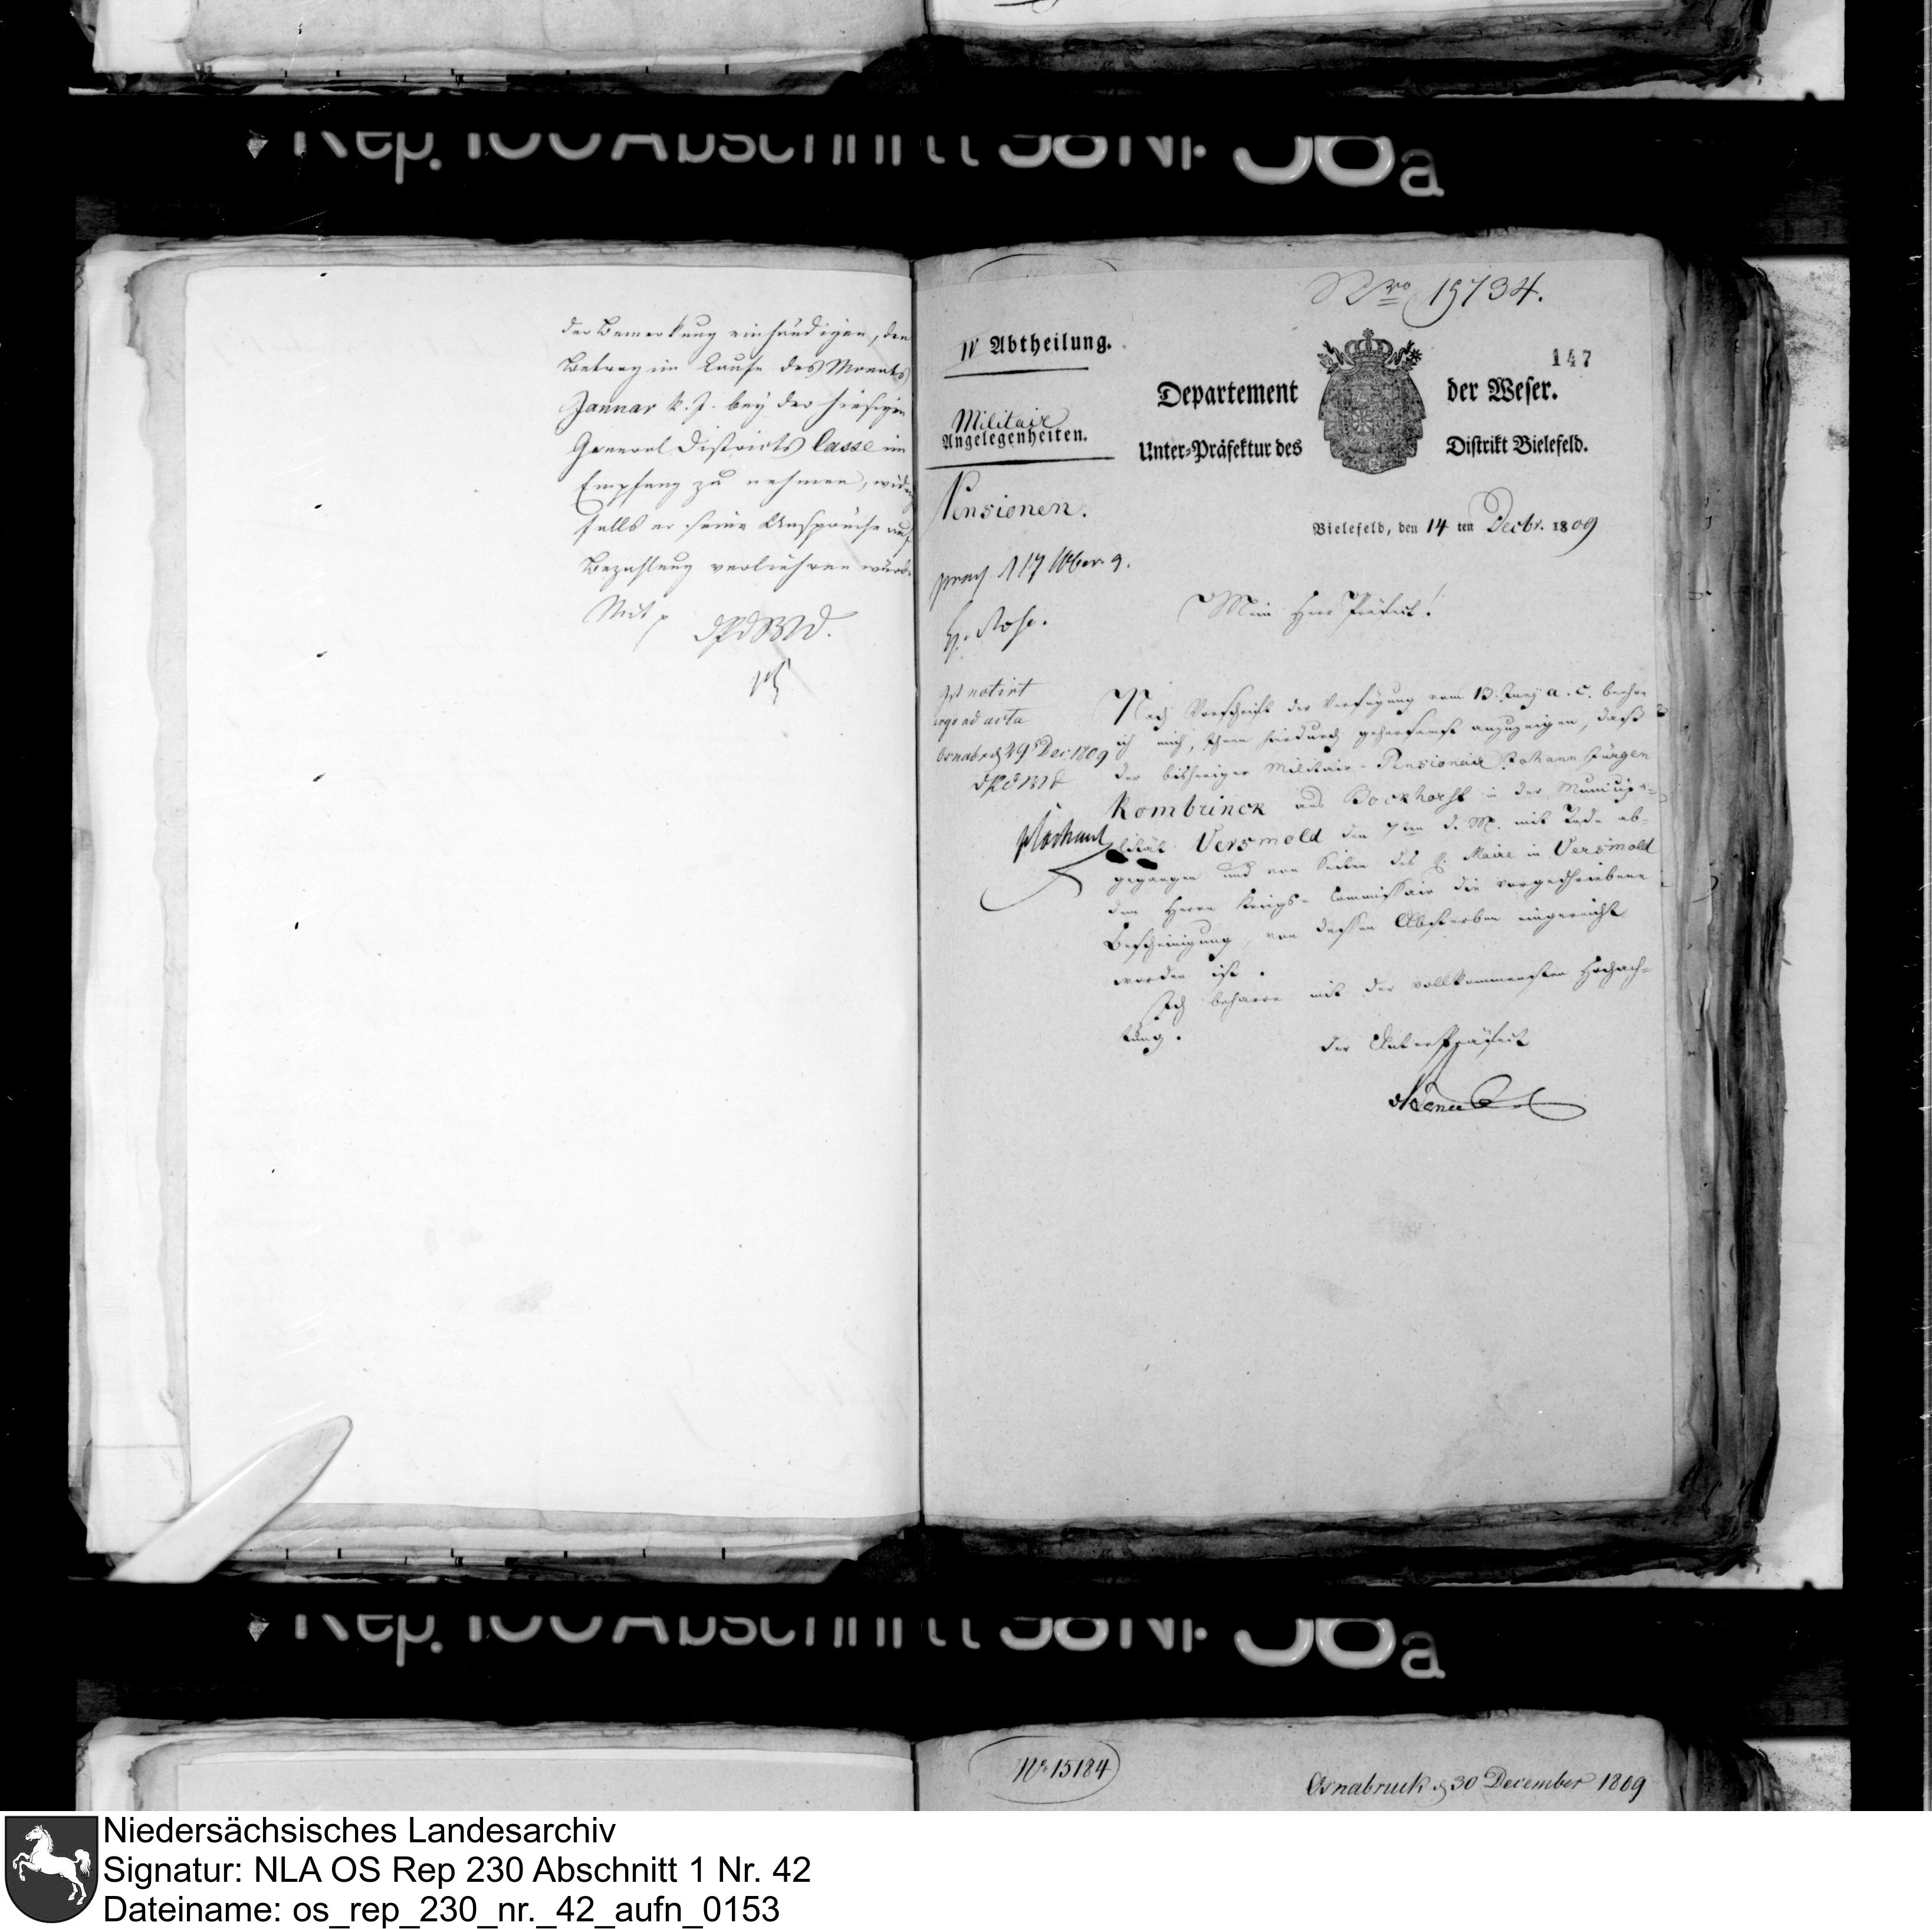 Rep. 100 Abschnitt 58 Nr. 38a
der Bemerkung einhändigen, den
Betrag im Laufe des Monats
Januar k. J. bey der hiesigen
General Districts Casse in
Empfang zu nehmen, widrigen
falls er seine Ansprüche auf
Bezahlung verliehren würde
Mit
DPdWD.
Nro 15734.
IV Abtheilung.
147
Departement der Weser.
Militair
Angelegenheiten.
Unter-Präfektur des Distrikt Bielefeld.
Pensionen.
Bielefeld, den 14 ten Decbr. 1809
Mein Herr Präfect!
H. Rose.
ist notirt
ergo ad acta
Osnabrück 29 Dec. 1809
DPdWD
Nach Vorschrift der Verfügung vom 13. Juny a. c. beehre
ich mich, Ihnen hierdurch gehorsamst anzuzeigen, daß
der bisherige Militair-Pensionair Johann Jürgen
Kombrinck aus Bockhorst in der Municipa-
litât Versmold den 7ten d. M. mit Tode ab-
gegangen und von Seiten des H. Maire in Versmold
dem Herrn Kriegs-Commissair die vorgeschriebene
Bescheinigung, von dessen Absterben eingereicht
worden ist.
Ich beharre mit der vollkommensten Hochach-
tung.
der Unterpräfect
Rep. 100 Abschnitt 58 Nr. 38a
No 15184
Osnabruck d 30 December 1809
Niedersächsisches Landesarchiv
Signatur: NLA OS Rep 230 Abschnitt 1 Nr. 42
Dateiname: os_rep_230_nr._42_aufn_0153